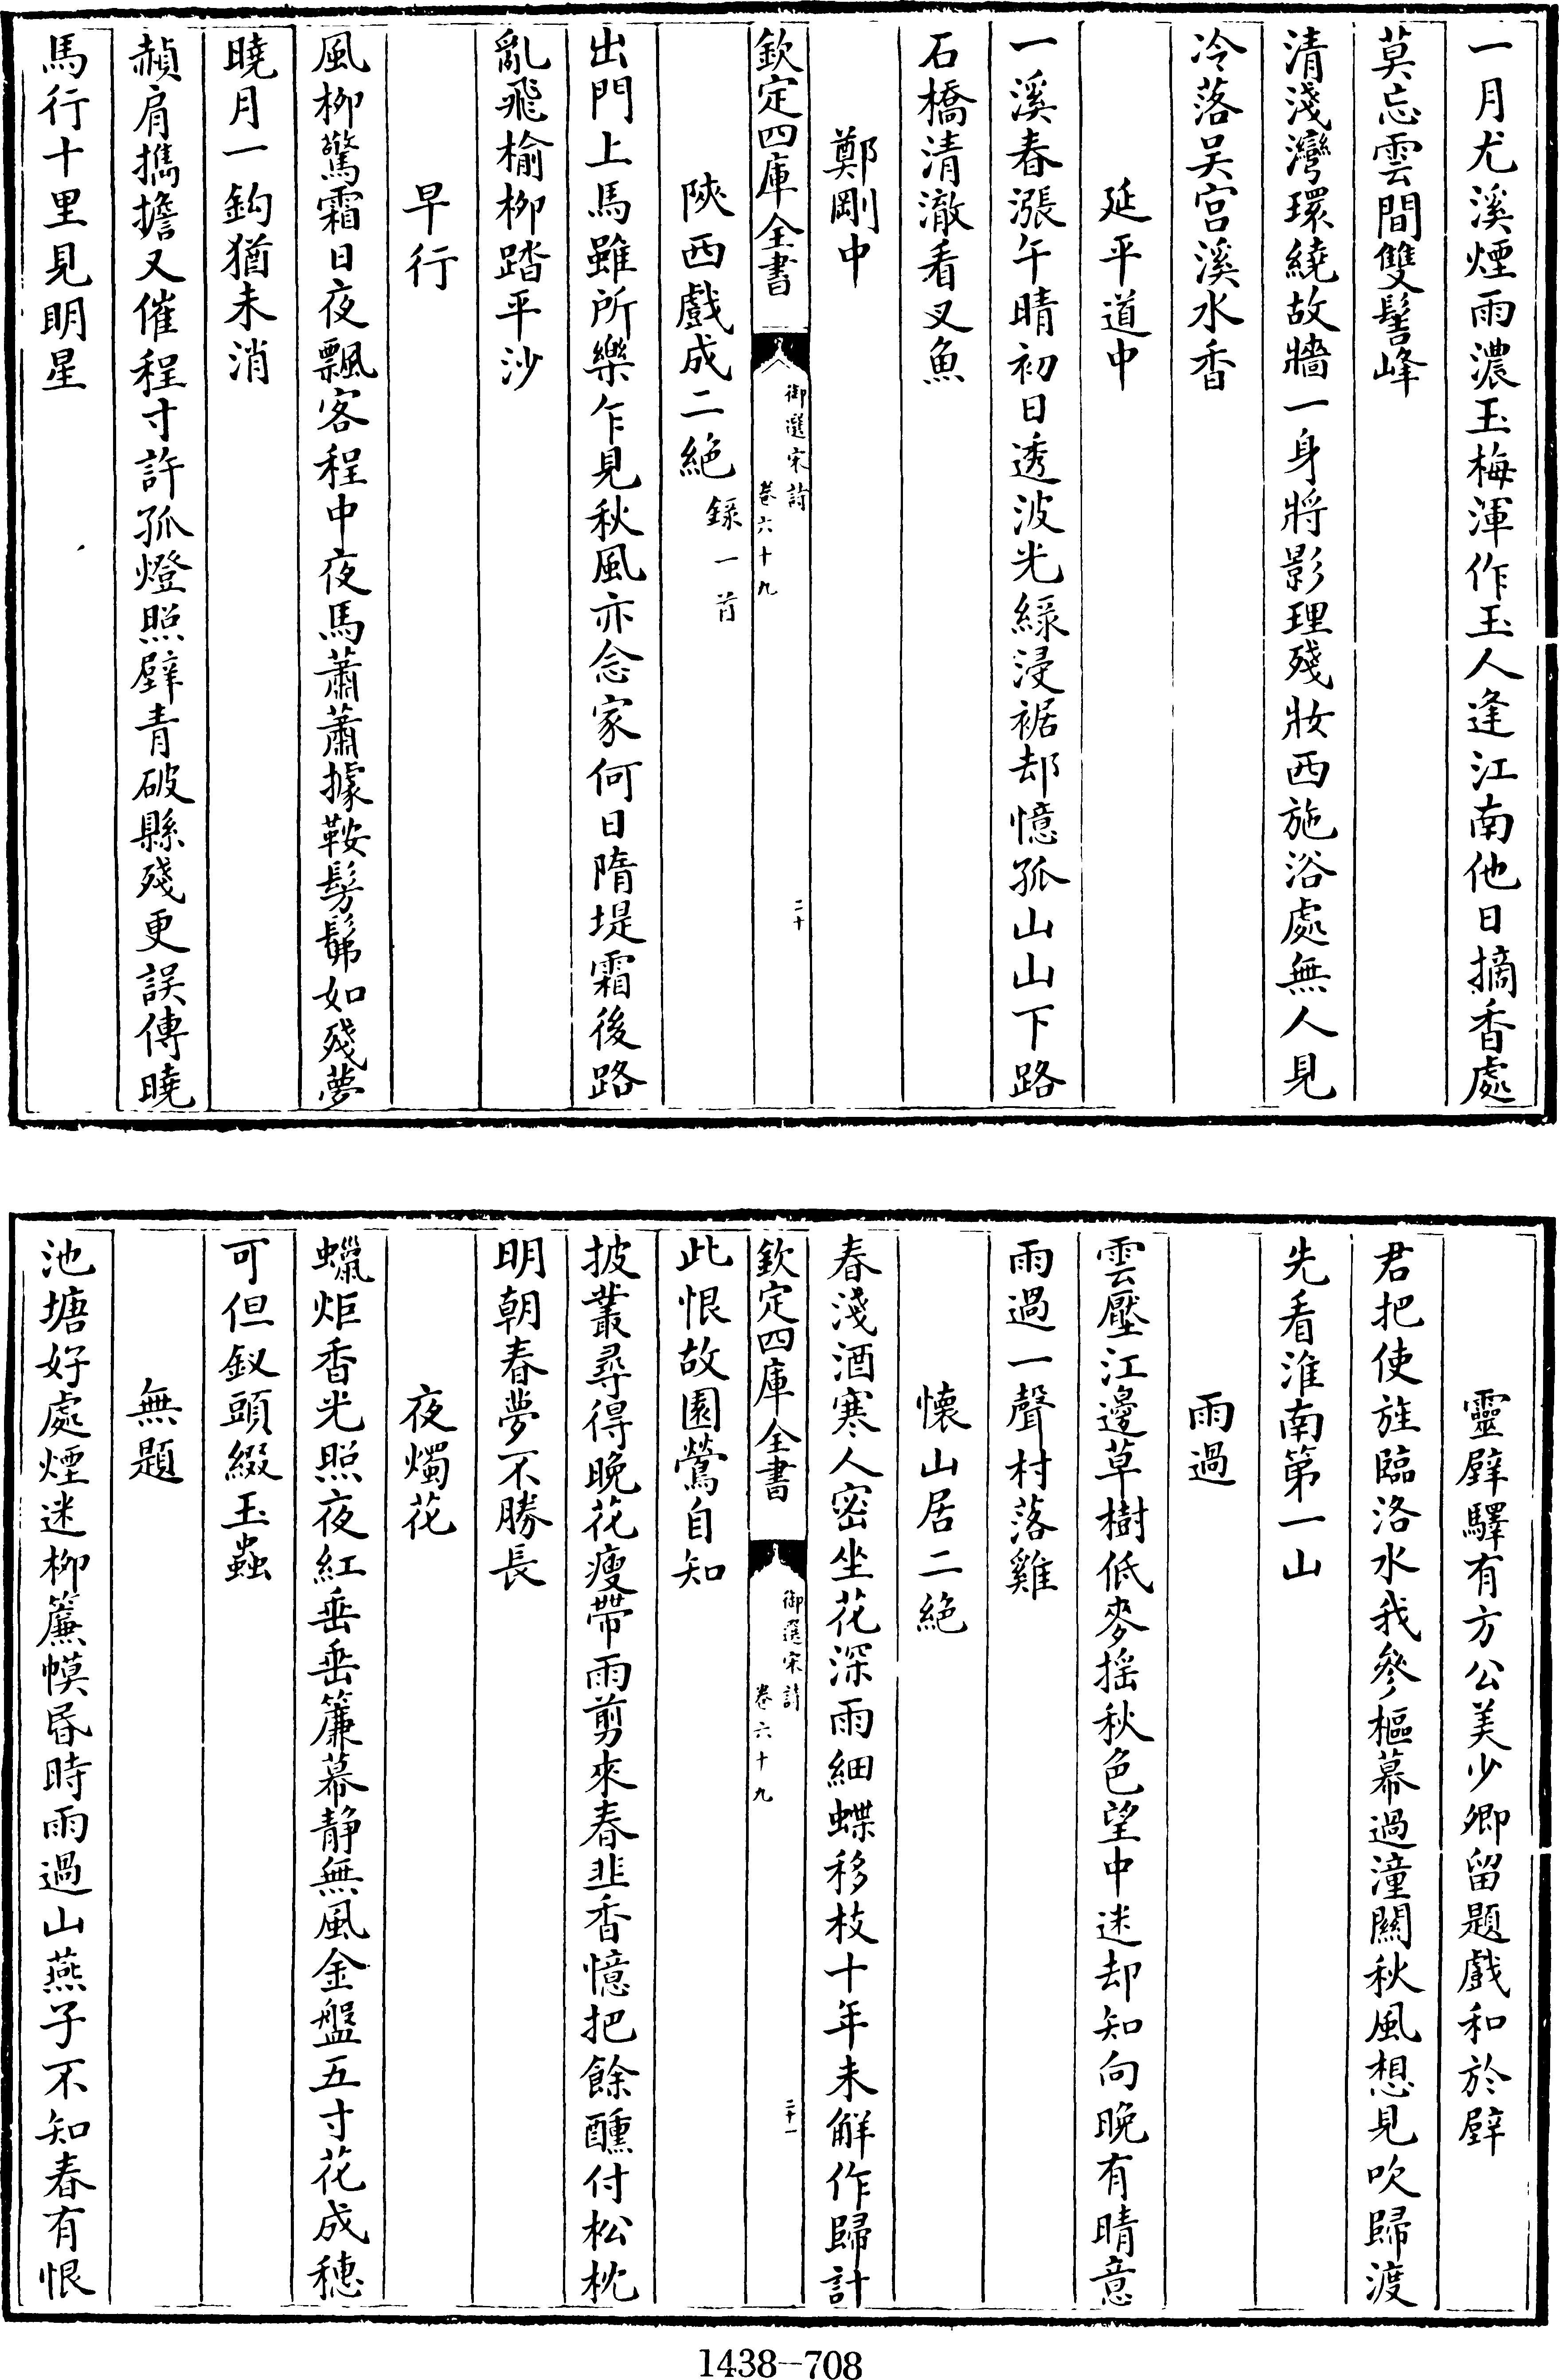 一月尤溪煙雨濃玉梅渾作玉人逢江南他日摘香處
莫忘雲間雙髻峰
清淺灣環繞故牆一身將影理殘妝西施浴處無人見
冷落吴宫溪水香
延平道中
一溪春漲午晴初日透波光緑浸裾却憶孤山山下路
石橋清澈看叉魚
鄭剛中
欽定四庫全書
御選宋詩
卷六十九
二十
陜西戲成二絶錄一首
出門上馬雖所樂乍見秋風亦念家何日隋堤霜後路
亂飛榆柳踏平沙
早行
風柳驚霜日夜飄客程中夜馬蕭蕭據鞍髣髴如殘夢
曉月一鈎猶未消
赬肩擕擔又催程寸許孤燈照壁青破縣殘更誤傳曉
馬行十里見明星
靈壁驛有方公美少卿留題戲和於壁
君把使旌臨洛水我參樞幕過潼關秋風想見吹歸渡
先看淮南第一山
雨過
雲壓江邊草樹低麥摇秋色望中迷却知向晚有晴意
雨過一聲村落雞
懷山居二絶
春淺酒寒人密坐花深雨細蝶移枝十年未解作歸計
欽定四庫全書
御選宋詩
卷六十九
二十一
此恨故園鶯自知
披叢尋得晚花瘦帶雨剪來春韭香憶把餘醺付松枕
明朝春夢不勝長
夜燭花
蠟炬香光照夜紅垂垂簾幕静無風金盤五寸花成穗
可但釵頭綴玉蟲
無題
池塘好處煙迷柳簾幙昏時雨過山燕子不知春有恨
1438-708